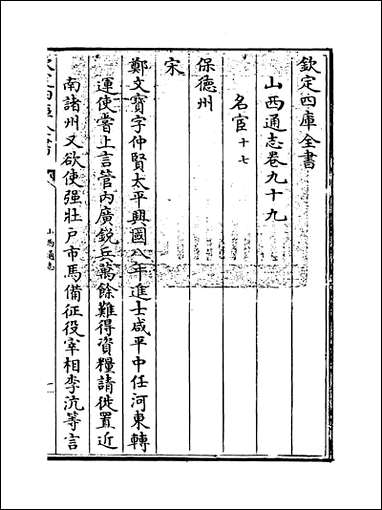 欽定四庫全書
山西通志卷九十九
名宦十七
保德州
宋
鄭文寳字仲賢太平興國八年進士咸平中任河東轉
運使嘗上言管内廣鋭兵萬餘難得資糧請徙置近
南諸州又欲使强壯戶市馬備征役宰相李沆等言
山西通志